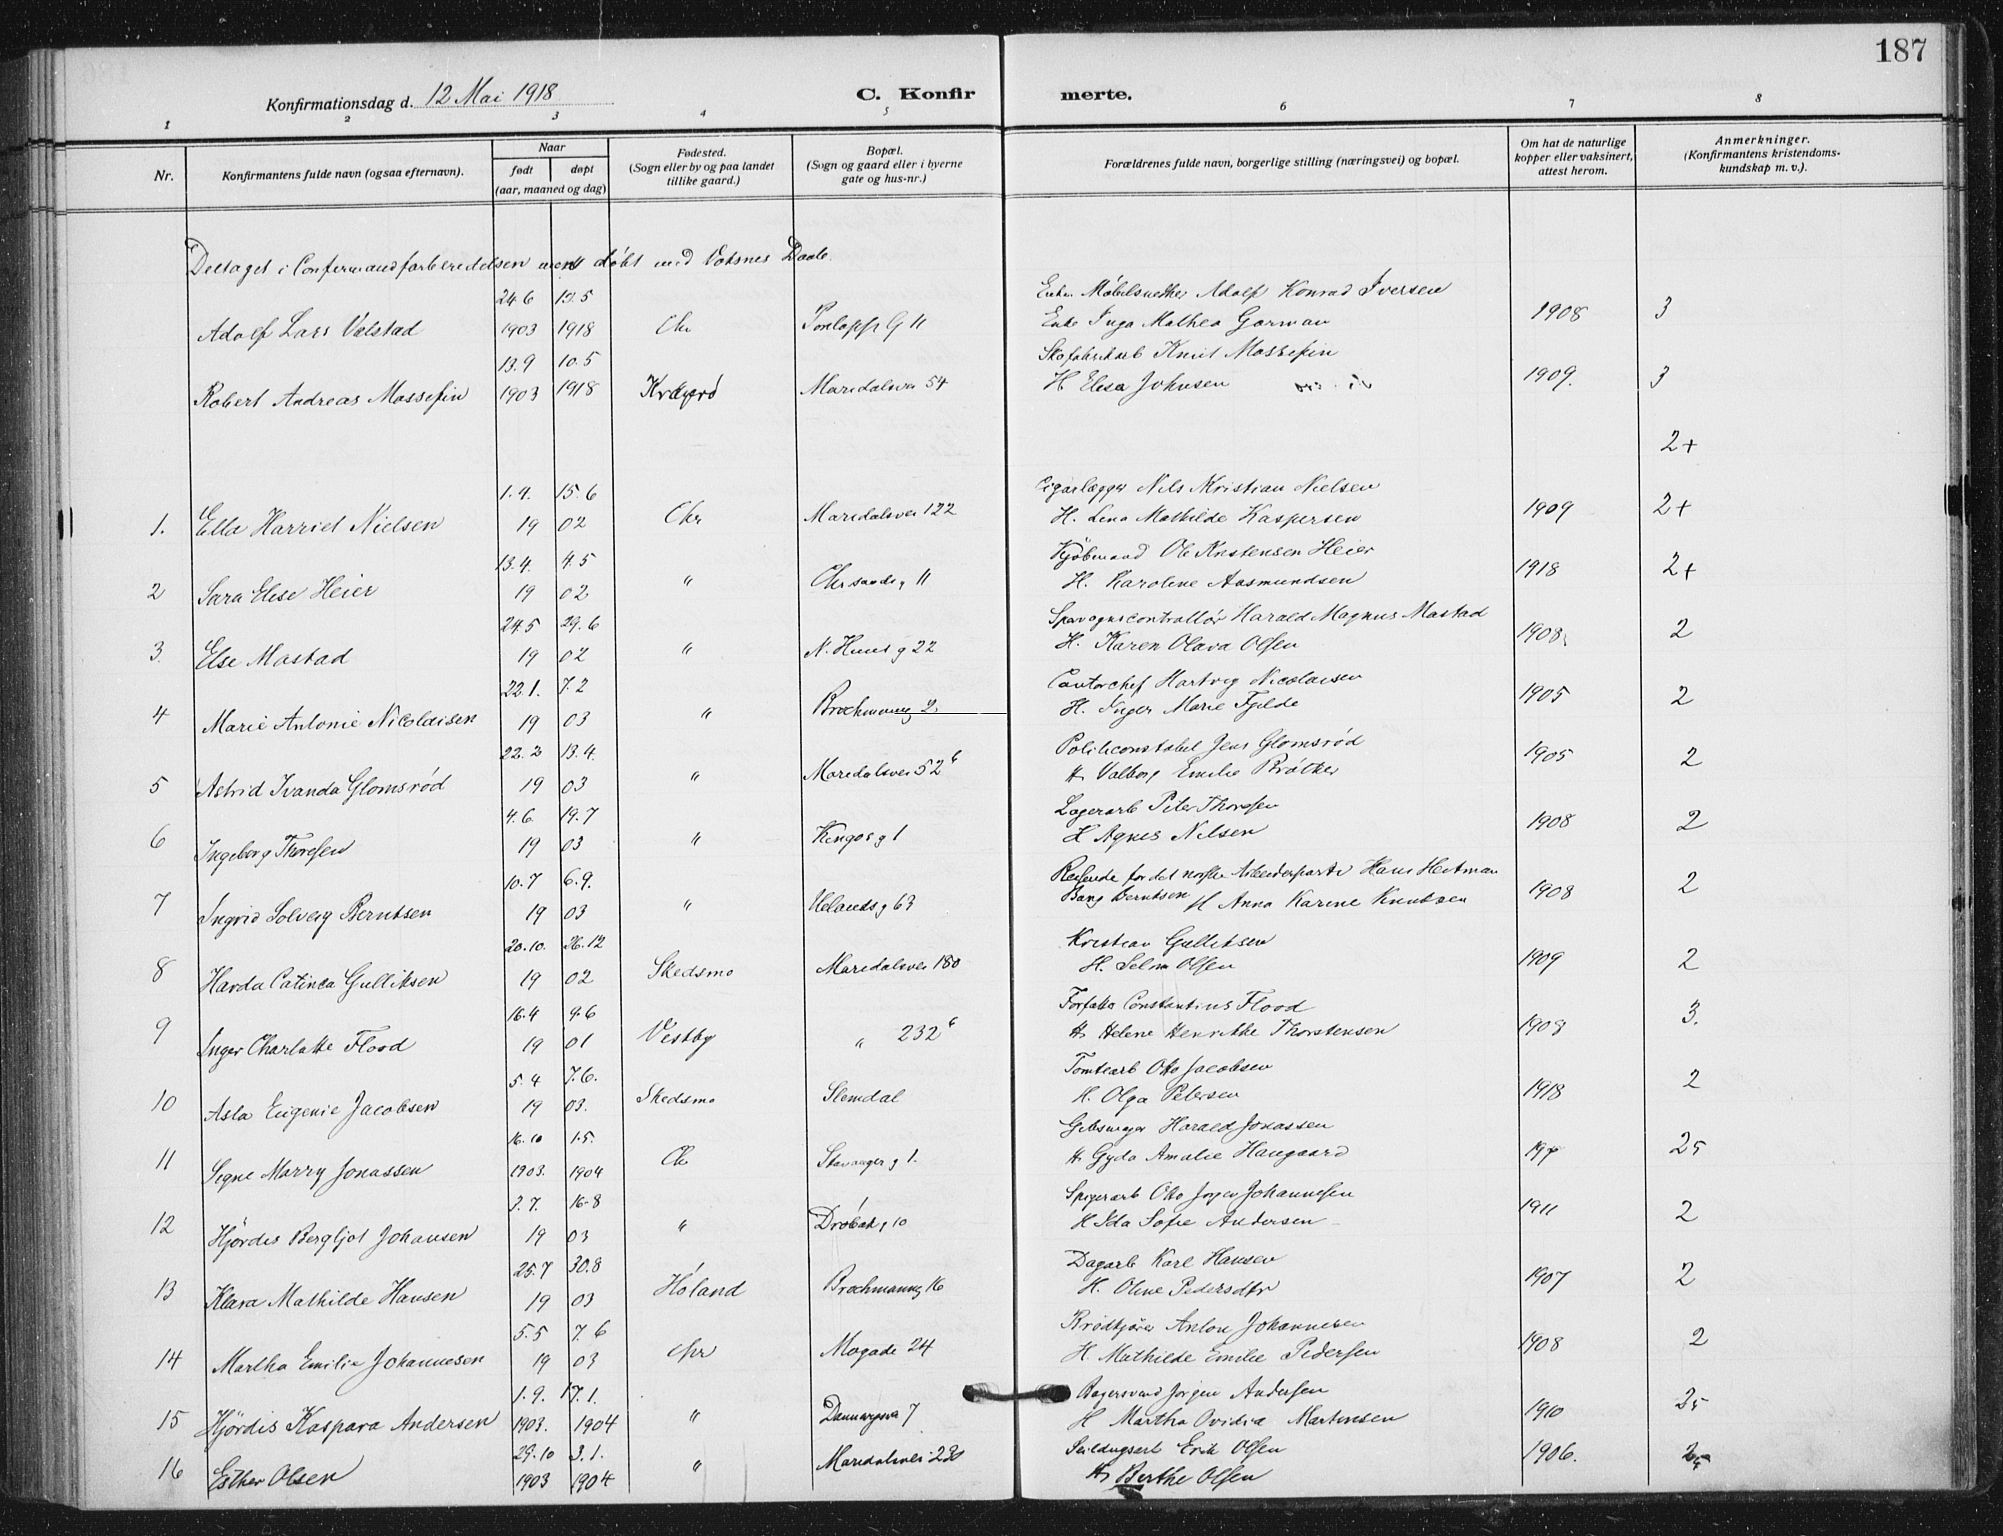 187
Konfirmationsdag d. 12 Mai 1918 C. Konfirmerte.
1 2 3 4 5 6 7 8
Nr. Konfirmantens fulde navn (ogsaa efternavn). Naar født døpt (aar, maaned og dag) Fødested. (Sogn eller by og paa landet tillike gaard.) Bopæl. (Sogn og gaard eller i byerne gate og hus-nr.) Forældrenes fulde navn, borgerlige stilling (næringsvei) og bopæl. Om hat de naturlige kopper eller vaksinert, attest herom. Anmerkninger. (Konfirmantens kristendomskundskap m. v.).
Deltaget i Confirmandforberedelsen ment døbt med Voksnes Daab.
24.6 12.5 Møbelsnedker Adolf Konrad Iversen
Adolf Lars Valstad 1903 1918 Chr G 11 Enke Inga Mathea Gorman 1908 3
13.9 10.5 Skofabrikarb Knut Massesin
Robert Andreas Massesin 1903 1918 Kragerø Maridalsvei 54 H Elisa Johnsen 1909. 3
2+
1.4. 15.6 Cigarlægger Nils Kristian Nielsen
1. Ella Harriet Nielsen 19 02 Chr Maridalsvei 122 H. Lena Mathilde Kaspersen 1909 2+
13.4. 4.5 Kjøbmand Ole Kristensen Heier
2 Sara Elise Heier 19 02 " Chrsands g 11 H. Karoline Aasmundsen 1918 2+
24.5 29.6 Sporvognscontrollør Harald Magnus Mastad
3. Else Mastad 19 02 " N. Huus g 22 H. Karen Olava Olsen 1908 2
22.1. 7.2 Contorchef Hartvig Nicolaisen
4 Marie Antonie Nicolaisen 19 03 " Brochmanng 2 H. Inger Marie Fjelde 1905 2
22.2 13.4. Politiconstabel Jens Glomsrød
5 Astrid Ivanda Glomsrød 19 03 " Maridalsvei 52 b H. Valborg Emilie Brøtker 1905 2
4.6. 19.7 Lagerarb Peter Thoresen
6 Ingeborg Thoresen 19 03 " Kingos g 1 H Agnes Nilsen 1908 2
10.7 6.9. Reisende for det norske Arbeiderparti Hans Heitman
7 Ingrid Solveig Berntsen 19 03 " Uelands g 63 Bang Berntsen H Anna Karine Knutsen 1908 2
20.10. 26.12 Kristian Gulliksen
8 Harda Catinca Gulliksen 19 02 Skedsmo Maridalsvei 180 H. Selma Olsen 1909 2
16.4 9.6 Forfatter Constantius Flood
9 Inger Charlotte Flood 19 01 Vestby " 232 b H. Helene Henrikke Thorstensen 1908 3.
5.4 7.6. Tomtearb Otto Jacobsen
10 Asla Eugenie Jacobsen 19 03. Skedsmo Slemdal H. Olga Petersen 1918 2
16.10 1.5. Harald Jonassen
11 Signe Marry Jonassen 1903. 1904 Chr Stavanger g 1. H. Gyda Amalie Haugaard 25
2.7. 16.8 Spigerarb Otto Johannesen
12 Hjørdis Bergljot Johansen 19 03 " Drøbak g 10 H Ida Sofie Andersen 1911 2
25.7 30.8 Dagarb Karl Hansen
13 Klara Mathilde Hansen 19 03 Høland Brochmanng 16 H. Oline Pedersdtr 1907 2
5.5 7.6 Brødkjører Anton Johannesen
14 Martha Emilie Johannesen 19 03 Chr Mogade 24 H. Mathilde Emilie Pedersen 1908 2
1.9. 17.1. Bagersvend Jørgen Andersen
15 Hjørdis Kaspara Andersen 1903. 1904 " 7 H Martha Ovidia Martinsen 1910 25
29.10 3.1. Erik Olsen
16 Esther Olsen 1903 1904 " Maridalsvei 230 H. Berthe Olsen 1906.